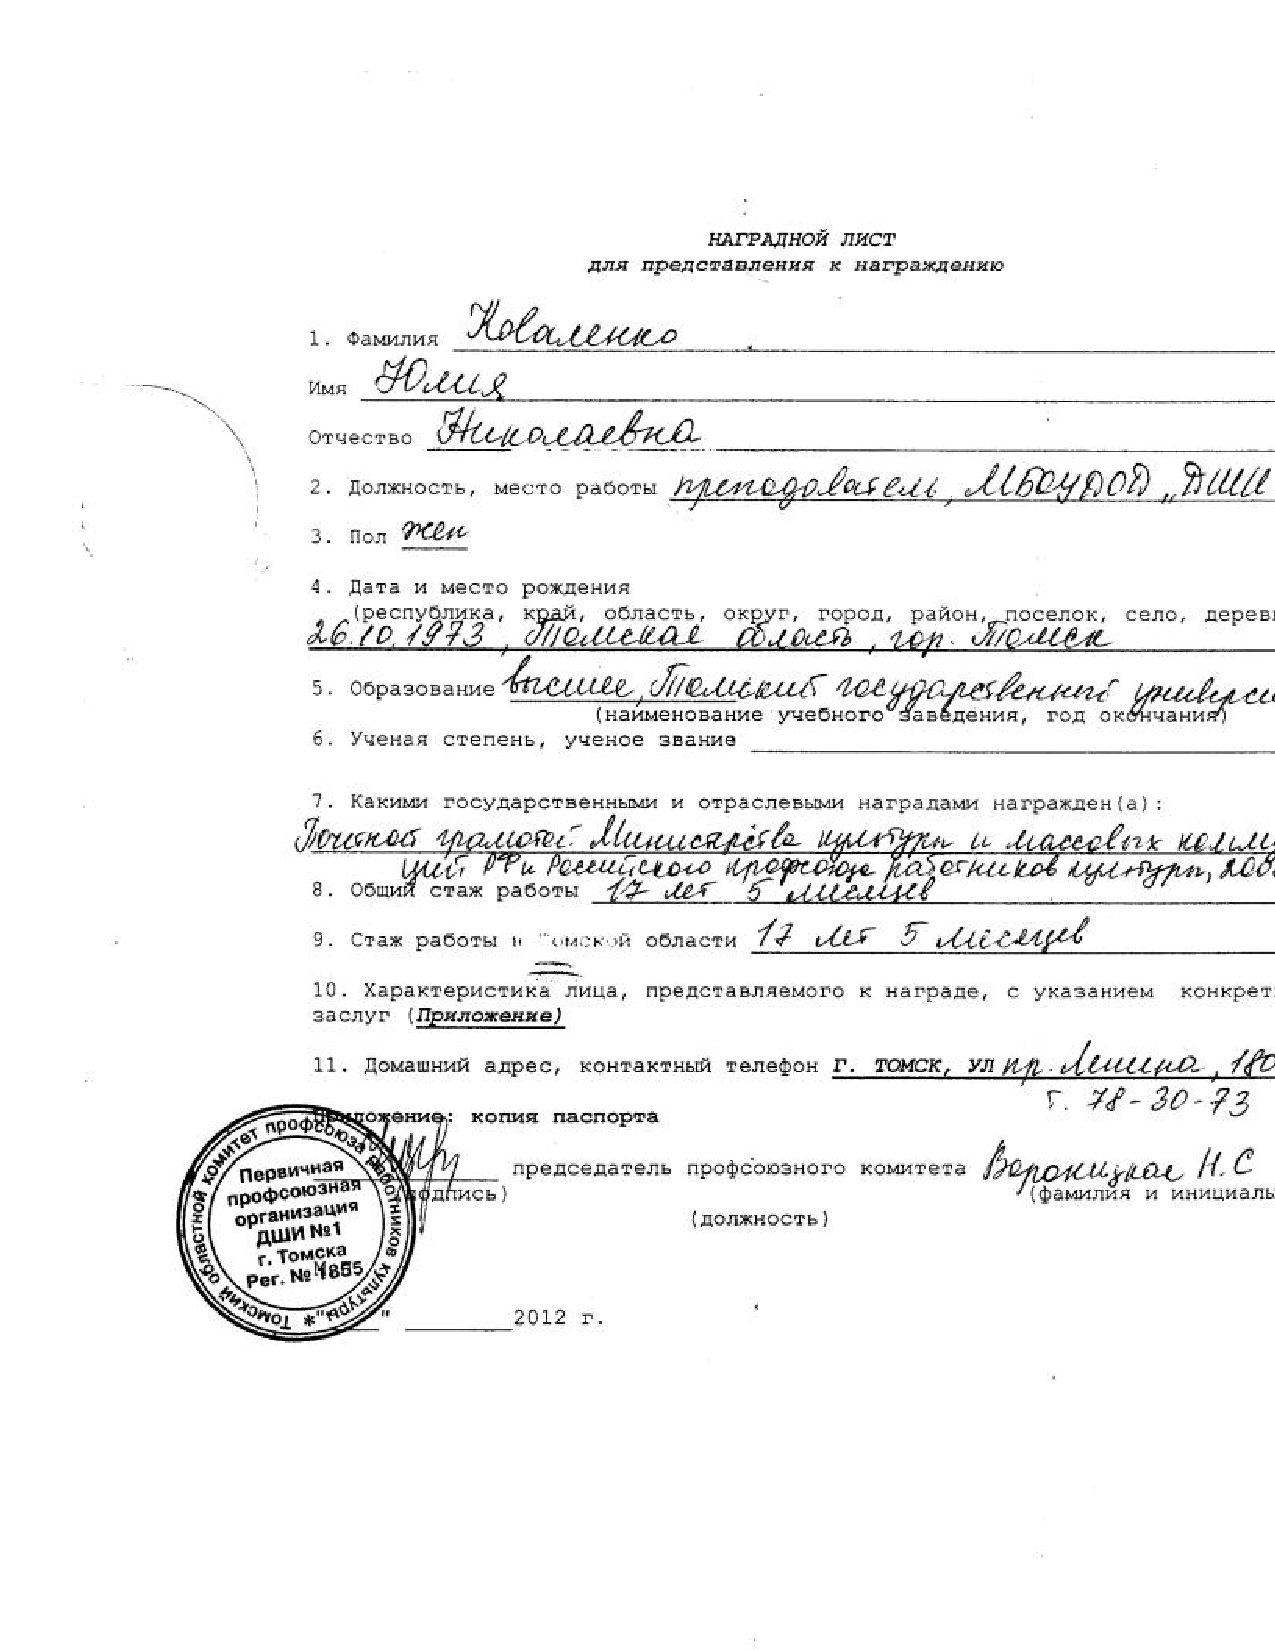 НАГРАДНОЙ ЛИСТ
для представления к награждению
1. Фамилия Коваленко
Имя Юлия
Отчество Николаевна
2. Должность, место работы преподаватель, МБОУДОД „ДШИ
3. Пол жен
4. Дата и место рождения
(республика, край, область, округ, город, район, поселок, село, дерев
26.10.1973, Томская область, гор. Томск
5. Образование высшее, Томский государственный универси
(наименование учебного заведения, год окончания)
6. Ученая степень, ученое звание
7. Какими государственными и отраслевыми наградами награжден(а):
Почетной грамотой Министерства культуры и массовых комму
ций РФ и Российского профсоюза работников культуры, 200
8. Общий стаж работы 17 лет 5 месяцев
9. Стаж работы в Томской области 17 лет 5 месяцев
10. Характеристика лица, представляемого к награде, с указанием конкрет
заслуг (Приложение)
11. Домашний адрес, контактный телефон Г. ТОМСК, УЛ пр. Ленина, 180
т. 78-30-73
Приложение: копия паспорта
председатель профсоюзного комитета Вороницкая Н.С
(подпись) (фамилия и инициалы
(должность)
Томский областной комитет профсоюза работников культуры
Первичная
профсоюзная
организация
ДШИ №1
г. Томска
Рег. №
" 2012 г.